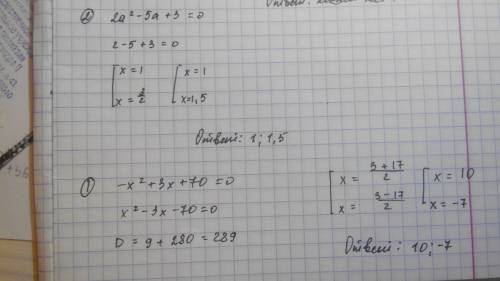 Ответ:
② 2a² - 5a + 3 = 0
2 - 5 + 3 = 0
[ x = 1 [ x = 1
x = 3/2 x = 1,5
Ответ: 1; 1,5
① -x² + 3x + 70 = 0
x² - 3x - 70 = 0
D = 9 + 280 = 289
[ x = (3 + 17)/2 [ x = 10
x = (3 - 17)/2 x = -7
Ответ: 10; -7